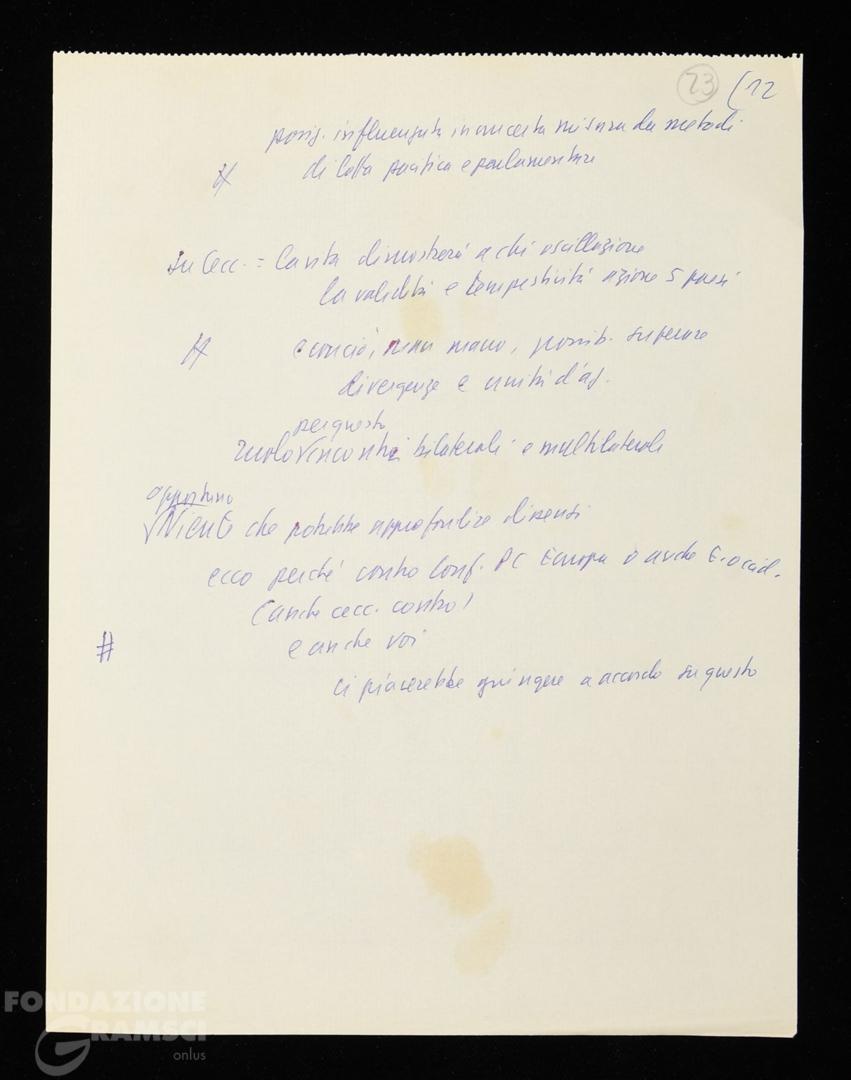 23 (12
posiz. influenzata in una certa misura da metodi
di lotta pacifica e parlamentare
su Cecc. = la vita dimostrerà a chi oscillazione
la validità e tempestività azione 5 paesi
e con ciò, man mano, possib. superare
divergenze e unità d'az.
per questo
ruolo incontri bilaterali e multilaterali
opportuno
Niente che potrebbe approfondire dissensi
ecco perché contro Conf. PC Europa o anche E. occid.
(anche cecc. contro)
e anche voi
#
ci piacerebbe giungere a accordo su questo
FONDAZIONE
GRAMSCI
onlus